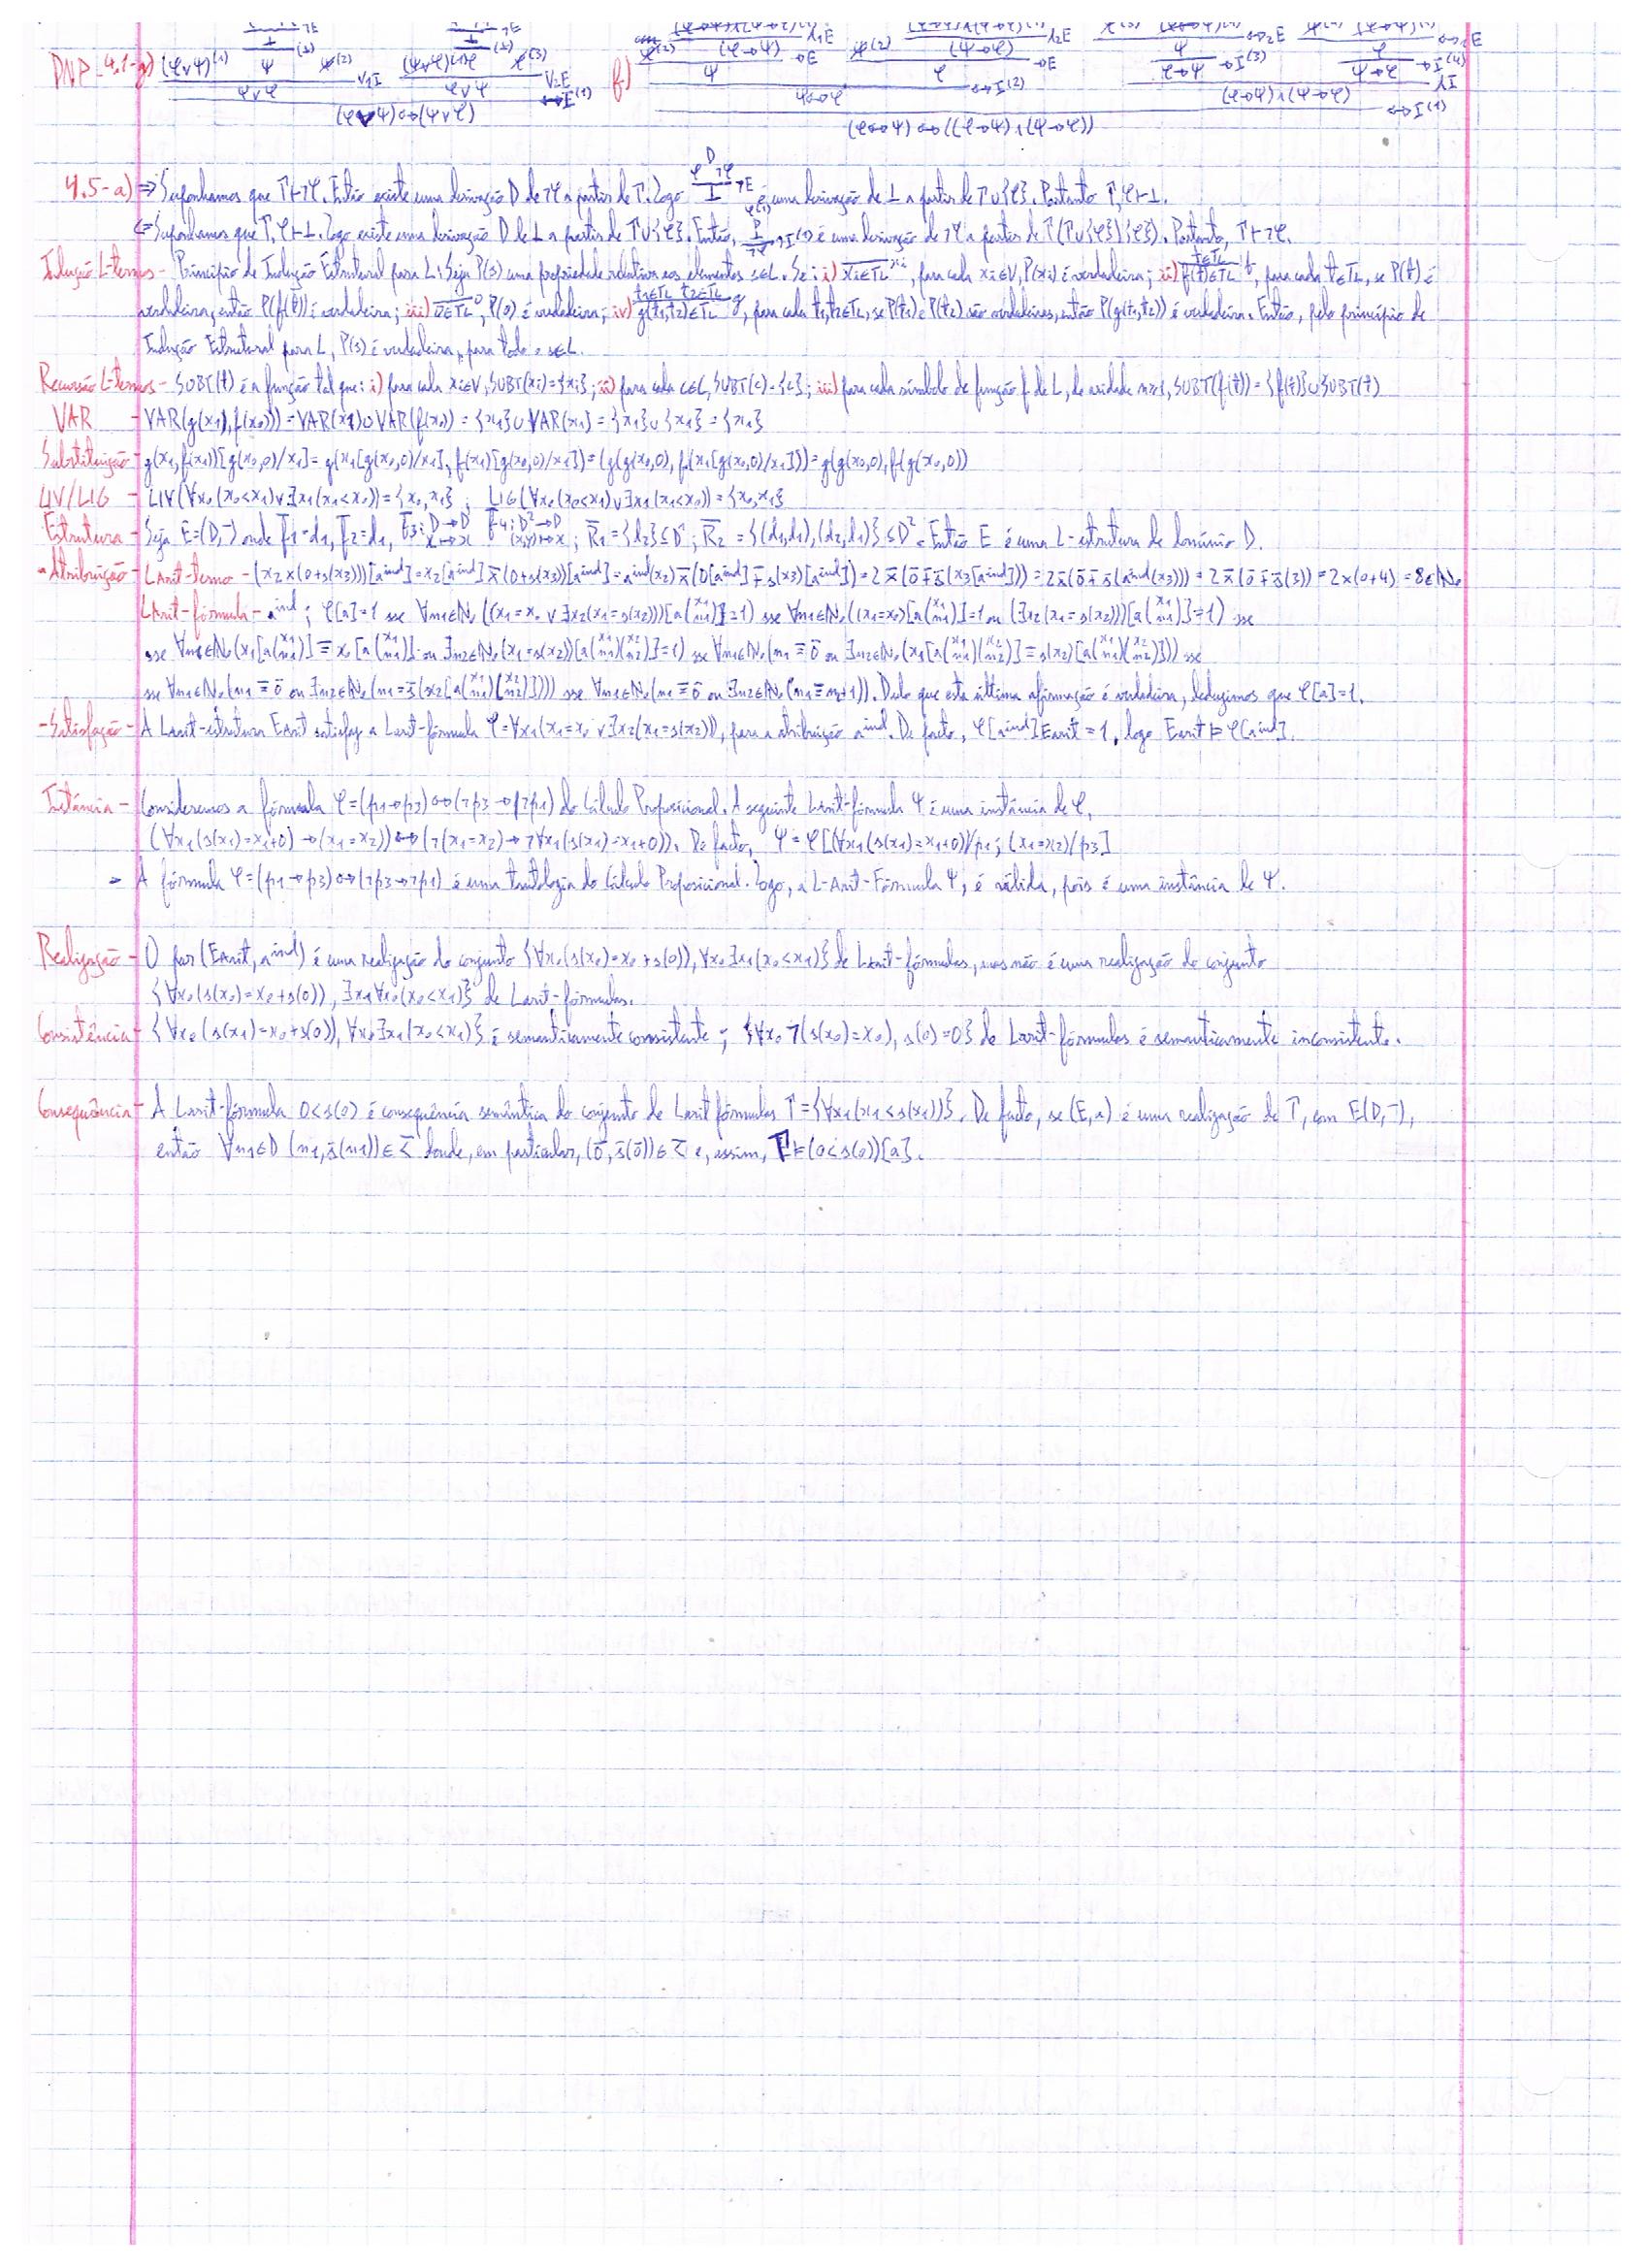 DNP-4.1-g) (φ∨ψ)⁽¹⁾ ψ ψ⁽²⁾ ∨₁I (ψ∨φ)⁽¹⁾ φ⁽³⁾ ∨₂E f) φ⁽²⁾ (φ→ψ) →E ψ⁽²⁾ (ψ→φ) →E
φ∨ψ φ∨φ ψ φ ↔I⁽²⁾ φ→ψ →I⁽³⁾ ψ→φ →I⁽⁴⁾
(φ∨ψ)↔(ψ∨φ) φ↔ψ (φ→ψ)∧(ψ→φ) ∧I
(φ↔ψ)↔((φ→ψ)∧(ψ→φ)) ↔I⁽¹⁾
4.5-a) ⇒ Suponhamos que Γ⊢¬φ. Então existe uma derivação D de ¬φ a partir de Γ. Logo φ D ¬φ / ⊥ ¬E é uma derivação de ⊥ a partir de Γ∪{φ}. Portanto Γ,φ⊢⊥.
⇐ Suponhamos que Γ,φ⊢⊥. Logo existe uma derivação D de ⊥ a partir de Γ∪{φ}. Então, φ⁽¹⁾ D / ¬φ ¬I⁽¹⁾ é uma derivação de ¬φ a partir de Γ(Γ∪{φ}\{φ}). Portanto, Γ⊢¬φ.
Indução L-termos - Princípio de Indução Estrutural para L: Seja P(s) uma propriedade relativa aos elementos s∈L. Se: i) xi∈TL xi, para cada xi∈V, P(xi) é verdadeira; ii) t∈TL / f(t)∈TL f, para cada t∈TL, se P(t) é
verdadeira, então P(f(t)) é verdadeira; iii) 0∈TL 0, P(0) é verdadeira; iv) t1∈TL t2∈TL / g(t1,t2)∈TL g, para cada t1,t2∈TL, se P(t1) e P(t2) são verdadeiras, então P(g(t1,t2)) é verdadeira. Então, pelo princípio de
Indução Estrutural para L, P(s) é verdadeira, para todo o s∈L.
Recursão L-termos - SUBT(t) é a função tal que: i) para cada xi∈V, SUBT(xi)={xi}; ii) para cada c∈L, SUBT(c)={c}; iii) para cada símbolo de função f de L, de aridade n≥1, SUBT(f(t)) = {f(t)}∪SUBT(t)
VAR - VAR(g(x1,f(x1))) = VAR(x1)∪VAR(f(x1)) = {x1}∪VAR(x1) = {x1}∪{x1} = {x1}
Substituição - g(x1,f(x1))[g(x0,0)/x1] = g(x1[g(x0,0)/x1], f(x1)[g(x0,0)/x1]) = (g(g(x0,0), f(x1[g(x0,0)/x1])) = g(g(x0,0), f(g(x0,0))
LIV/LIG - LIV(∀x0(x0<x1)∨∃x1(x1<x0)) = {x0,x1} ; LIG(∀x0(x0<x1)∨∃x1(x1<x0)) = {x0,x1}
Estrutura - Seja E=(D,‾) onde f̄1=d1, f̄2=d1, f̄3: D→D x↦x f̄4: D²→D (x,y)↦x ; R̄1={d2}⊆D ; R̄2 = {(d1,d1),(d2,d1)}⊆D². Então E é uma L-estrutura de domínio D.
-Atribuição - LArit-termo - (x2×(0+s(x3)))[aind] = x2[aind] ×̄ (0+s(x3))[aind] = aind(x2) ×̄ (0[aind] +̄ s(x3)[aind]) = 2 ×̄ (0̄ +̄ s̄(x3[aind])) = 2 ×̄ (0̄ +̄ s̄(aind(x3))) = 2 ×̄ (0̄ +̄ s̄(3)) = 2×(0+4) = 8∈ℕ0
LArit-fórmula - aind ; φ[a]=1 sse ∀n1∈ℕ0((x1=x0 ∨ ∃x2(x1=s(x2)))[a(x1 n1)]=1) sse ∀n1∈ℕ0((x1=x0)[a(x1 n1)]=1 ou (∃x2(x1=s(x2)))[a(x1 n1)]=1) sse
sse ∀n1∈ℕ0(x1[a(x1 n1)] =̄ x0[a(x1 n1)] ou ∃n2∈ℕ0(x1=s(x2))[a(x1 n1)(x2 n2)]=1) sse ∀n1∈ℕ0(n1 =̄ 0̄ ou ∃n2∈ℕ0(x1[a(x1 n1)(x2 n2)] =̄ s(x2)[a(x1 n1)(x2 n2)])) sse
sse ∀n1∈ℕ0(n1 =̄ 0̄ ou ∃n2∈ℕ0(n1 =̄ s̄(x2[a(x1 n1)(x2 n2)]))) sse ∀n1∈ℕ0(n1 =̄ 0̄ ou ∃n2∈ℕ0(n1 =̄ n2+1)). Dado que esta última afirmação é verdadeira, deduzimos que φ[a]=1.
-Satisfação - A LArit-estrutura EArit satisfaz a LArit-fórmula φ=∀x1(x1=x0 ∨ ∃x2(x1=s(x2)), para a atribuição aind. De facto, φ[aind]Earit=1, logo Earit ⊨ φ[aind].
Instância - Consideremos a fórmula φ=(p1→p3)↔(¬p3→¬p1) do Cálculo Proposicional. A seguinte LArit-fórmula ψ é uma instância de φ,
(∀x1(s(x1)=x1+0)→(x1=x2))↔(¬(x1=x2)→¬∀x1(s(x1)=x1+0)). De facto, ψ = φ[(∀x1(s(x1)=x1+0)/p1; (x1=x2)/p3]
→ A fórmula φ=(p1→p3)↔(¬p3→¬p1) é uma tautologia do Cálculo Proposicional. Logo, a L-Arit-Fórmula ψ, é válida, pois é uma instância de φ.
Realização - O par (EArit, aind) é uma realização do conjunto {∀x0(s(x0)=x0+s(0)), ∀x0∃x1(x0<x1)} de LArit-fórmulas, mas não é uma realização do conjunto
{∀x0(s(x0)=x0+s(0)), ∃x1∀x0(x0<x1)} de Larit-fórmulas.
Consistência - {∀x0(s(x1)=x0+s(0)), ∀x0∃x1(x0<x1)} é semanticamente consistente; {∀x0 ¬(s(x0)=x0), s(0)=0} de Larit-fórmulas é semanticamente inconsistente.
Consequência - A Larit-fórmula 0<s(0) é consequência semântica do conjunto de Larit fórmulas Γ={∀x1(x1<s(x1))}. De facto, se (E,a) é uma realização de Γ, com E(D,‾),
então ∀n1∈D (n1,s̄(n1))∈<̄ donde, em particular, (0̄,s̄(0̄))∈<̄ e, assim, E⊨(0<s(0))[a].